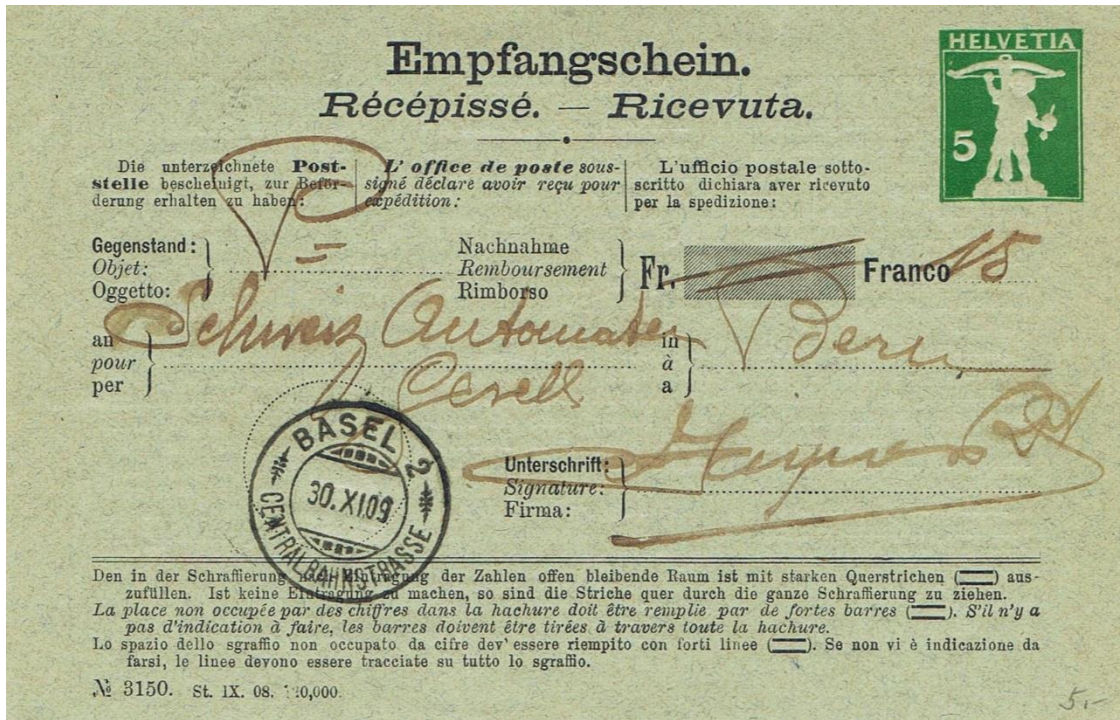 Empfangschein.
Récépissé. — Ricevuta.
HELVETIA
5
Die unterzeichnete Post-
stelle bescheinigt, zur Beför-
derung erhalten zu haben:
L'office de poste sous-
signé déclare avoir reçu pour
expédition:
L'ufficio postale sotto-
scritto dichiara aver ricevuto
per la spedizione:
Gegenstand:
Objet:
Oggetto:
Nachnahme
Remboursement
Rimborso
Fr. Franco 15
an
pour
per
Schweiz Automaten
in
à
a
Bern
BASEL 2
30.XI.09
CENTRALBAHNSTRASSE
Unterschrift:
Signature:
Firma:
Den in der Schraffierung nach Eintragung der Zahlen offen bleibende Raum ist mit starken Querstrichen (═) aus-
zufüllen. Ist keine Eintragung zu machen, so sind die Striche quer durch die ganze Schraffierung zu ziehen.
La place non occupée par des chiffres dans la hachure doit être remplie par de fortes barres (═). S'il n'y a
pas d'indication à faire, les barres doivent être tirées à travers toute la hachure.
Lo spazio dello sgraffio non occupato da cifre dev' essere riempito con forti linee (═). Se non vi è indicazione da
farsi, le linee devono essere tracciate su tutto lo sgraffio.
№ 3150. St. IX. 08.
5.-